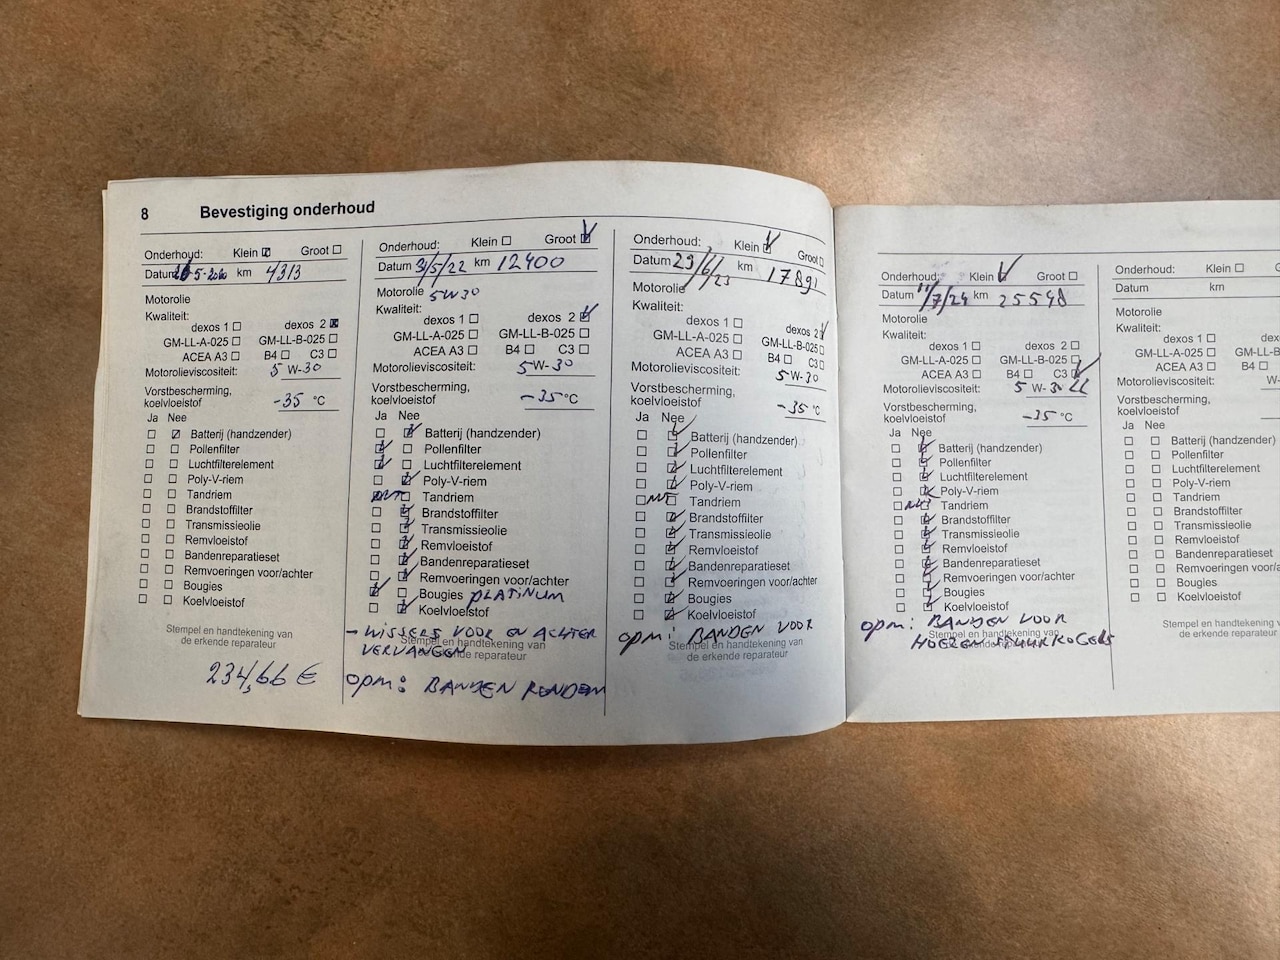 8 Bevestiging onderhoud
Onderhoud: Klein Groot
Datum km 4313
Motorolie
Kwaliteit:
dexos 1 dexos 2
GM-LL-A-025 GM-LL-B-025
ACEA A3 B4 C3
Motorolieviscositeit: 5 W-30
Vorstbescherming,
koelvloeistof -35 °C
Ja Nee
Batterij (handzender)
Pollenfilter
Luchtfilterelement
Poly-V-riem
Tandriem
Brandstoffilter
Transmissieolie
Remvloeistof
Bandenreparatieset
Remvoeringen voor/achter
Bougies
Koelvloeistof
Stempel en handtekening van
de erkende reparateur
234,66 €
Onderhoud: Klein Groot
Datum 31/5/22 km 12400
Motorolie 5W30
Kwaliteit:
dexos 1 dexos 2
GM-LL-A-025 GM-LL-B-025
ACEA A3 B4 C3
Motorolieviscositeit: 5 W-30
Vorstbescherming,
koelvloeistof -35 °C
Ja Nee
Batterij (handzender)
Pollenfilter
Luchtfilterelement
Poly-V-riem
NVT Tandriem
Brandstoffilter
Transmissieolie
Remvloeistof
Bandenreparatieset
Remvoeringen voor/achter
Bougies PLATINUM
Koelvloeistof
- WISSERS VOOR EN ACHTER
VERVANGEN
Stempel en handtekening van
de erkende reparateur
opm: BANDEN RONDOM
Onderhoud: Klein Groot
Datum 29/6/23 km 17891
Motorolie
Kwaliteit:
dexos 1 dexos 2
GM-LL-A-025 GM-LL-B-025
ACEA A3 B4 C3
Motorolieviscositeit: 5 W-30
Vorstbescherming,
koelvloeistof -35 °C
Ja Nee
Batterij (handzender)
Pollenfilter
Luchtfilterelement
Poly-V-riem
NVT Tandriem
Brandstoffilter
Transmissieolie
Remvloeistof
Bandenreparatieset
Remvoeringen voor/achter
Bougies
Koelvloeistof
opm: BANDEN VOOR
Stempel en handtekening van
de erkende reparateur
Onderhoud: Klein Groot
Datum 11/7/24 km 25548
Motorolie
Kwaliteit:
dexos 1 dexos 2
GM-LL-A-025 GM-LL-B-025
ACEA A3 B4 C3
Motorolieviscositeit: 5 W-30
Vorstbescherming,
koelvloeistof -35 °C
Ja Nee
Batterij (handzender)
Pollenfilter
Luchtfilterelement
Poly-V-riem
NVT Tandriem
Brandstoffilter
Transmissieolie
Remvloeistof
Bandenreparatieset
Remvoeringen voor/achter
Bougies
Koelvloeistof
opm: BANDEN VOOR
Stempel en handtekening van
de erkende reparateur
Onderhoud: Klein
Datum km
Motorolie
Kwaliteit:
dexos 1
GM-LL-A-025 GM-LL-B
ACEA A3 B4
Motorolieviscositeit: W-
Vorstbescherming,
koelvloeistof
Ja Nee
Batterij (handzender)
Pollenfilter
Luchtfilterelement
Poly-V-riem
Tandriem
Brandstoffilter
Transmissieolie
Remvloeistof
Bandenreparatieset
Remvoeringen voor/a
Bougies
Koelvloeistof
Stempel en handtekening v
de erkende reparateur